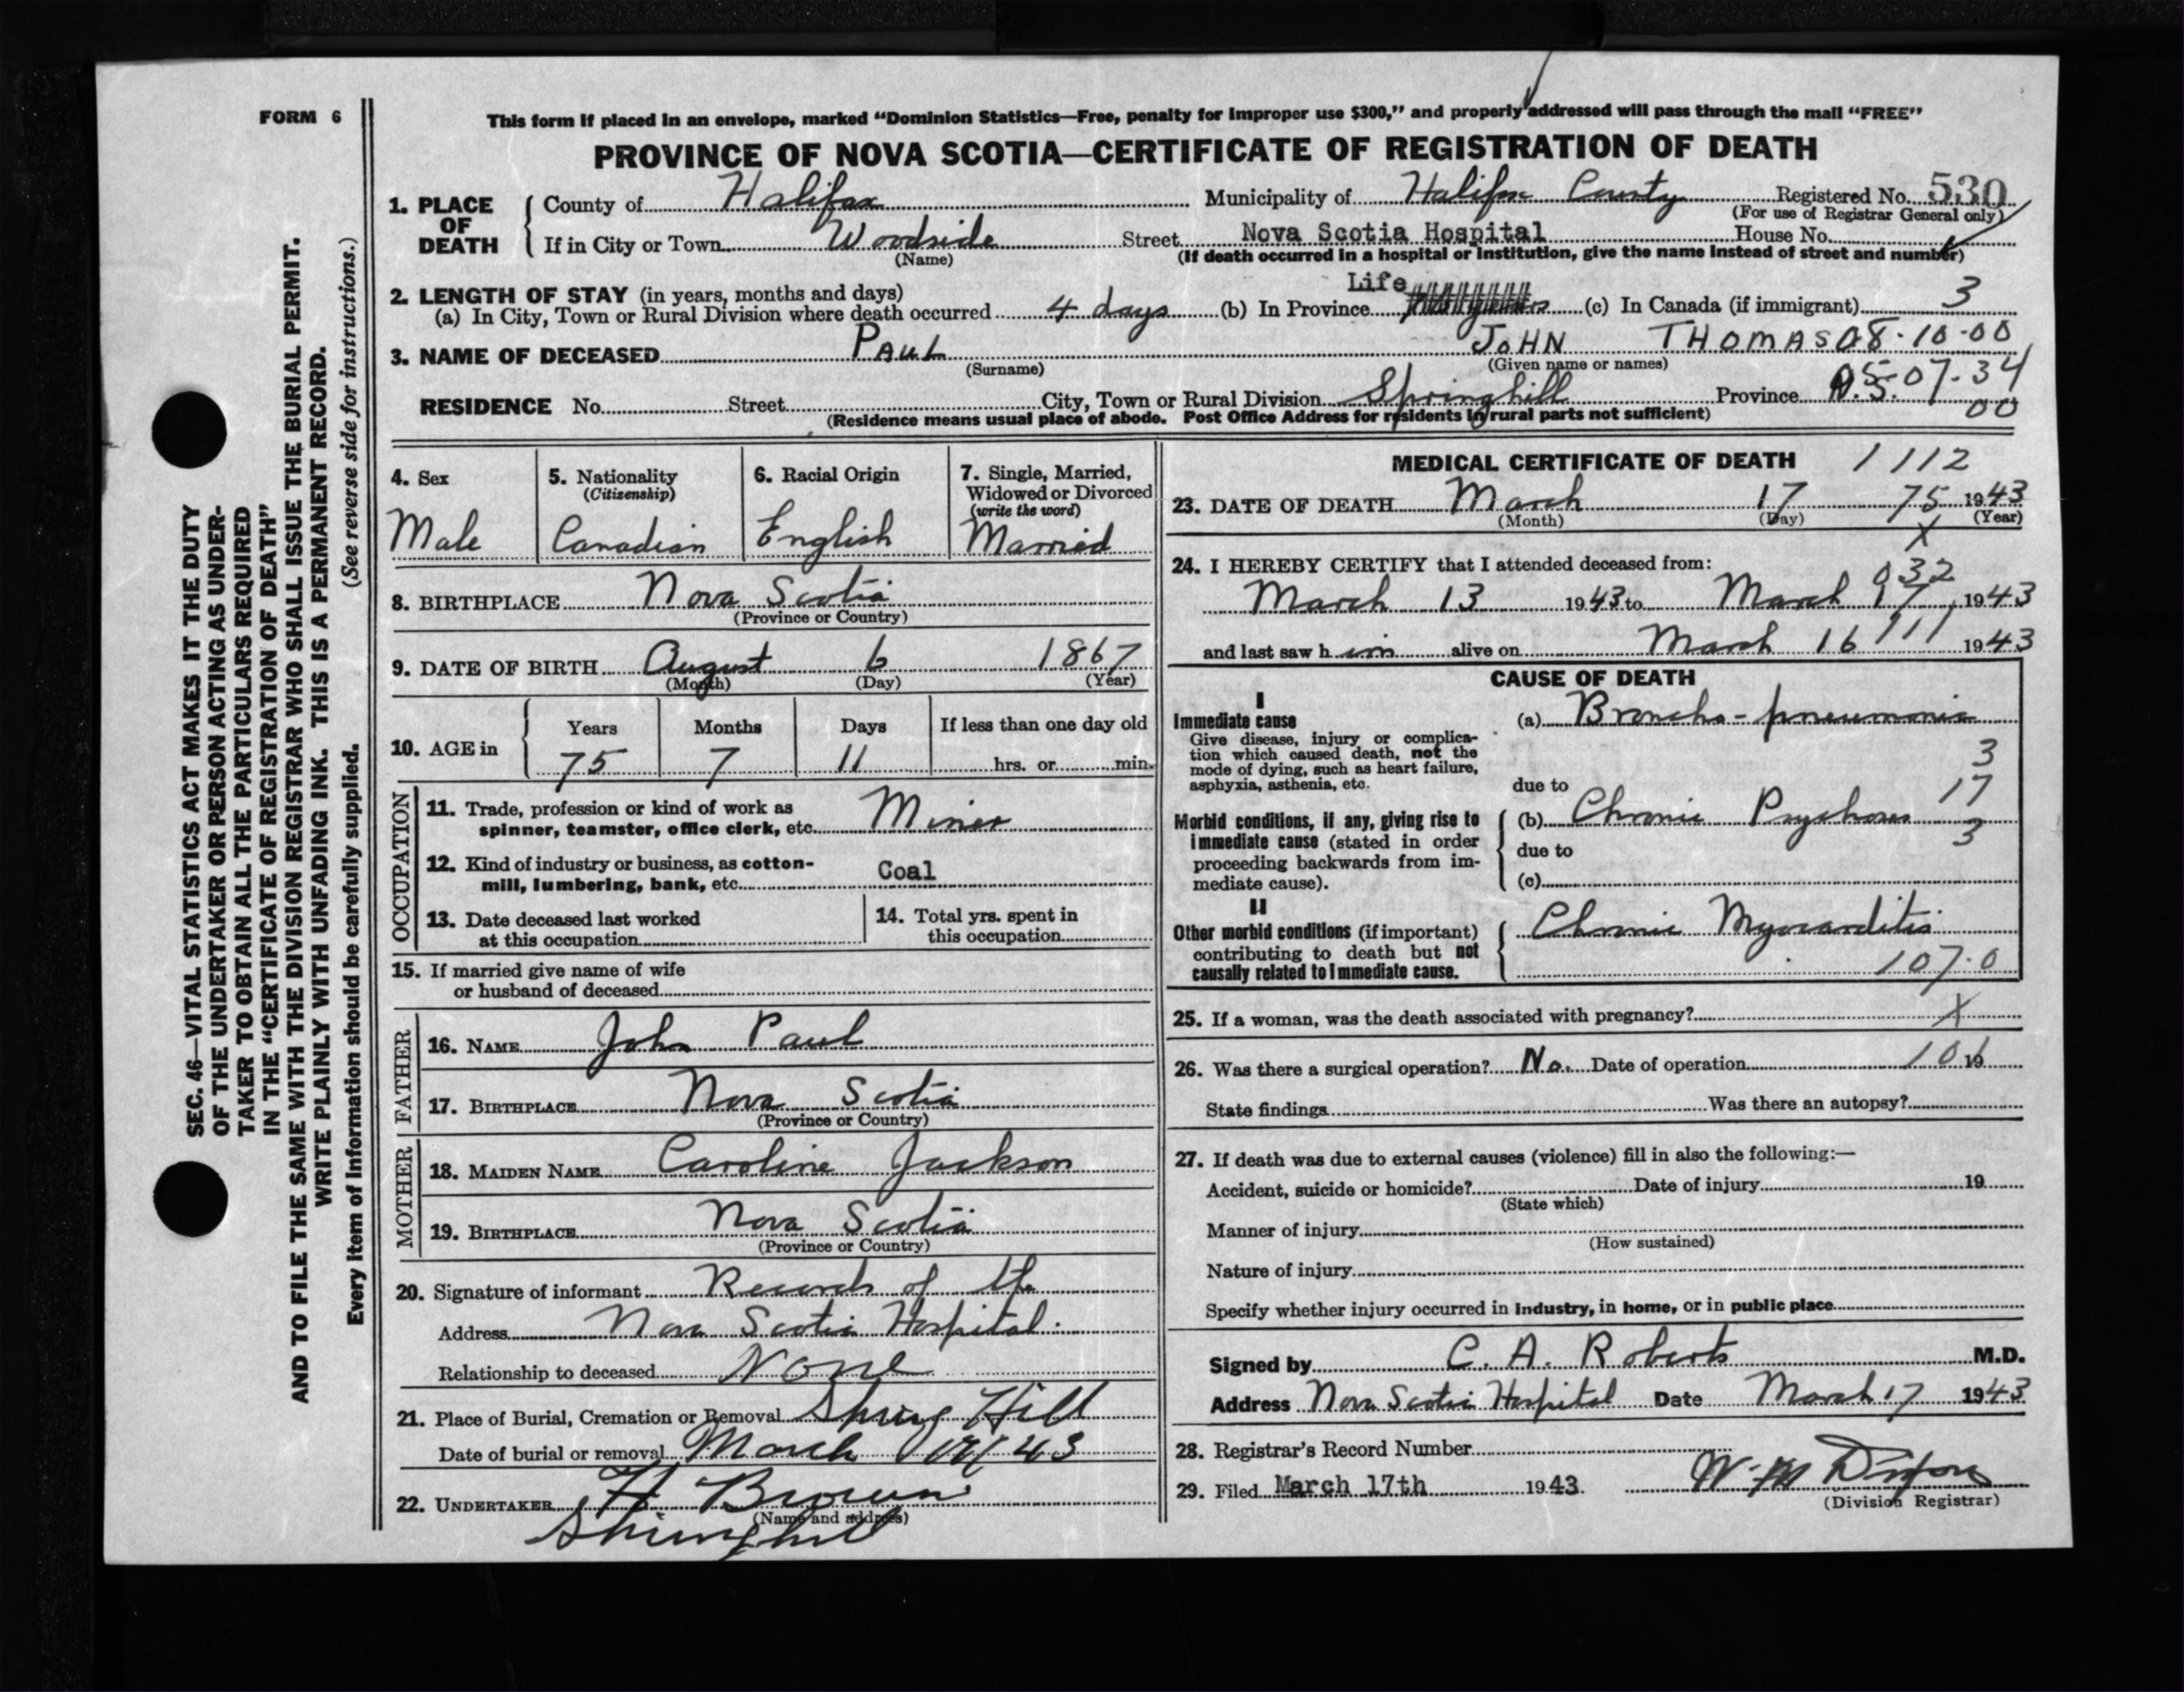 FORM 6
This form if placed in an envelope, marked "Dominion Statistics—Free, penalty for improper use $300," and properly addressed will pass through the mail "FREE"
PROVINCE OF NOVA SCOTIA—CERTIFICATE OF REGISTRATION OF DEATH
1. PLACE OF DEATH County of Halifax Municipality of Halifax County Registered No. 530
(For use of Registrar General only)
If in City or Town Woodside Street Nova Scotia Hospital House No.
(Name) (If death occurred in a hospital or institution, give the name instead of street and number)
2. LENGTH OF STAY (in years, months and days) Life
(a) In City, Town or Rural Division where death occurred 4 days (b) In Province (c) In Canada (if immigrant) 3
3. NAME OF DECEASED PAUL JOHN THOMAS 08-10-00
(Surname) (Given name or names)
05-07-34
RESIDENCE No. Street City, Town or Rural Division Springhill Province N.S.
00
(Residence means usual place of abode. Post Office Address for residents in rural parts not sufficient)
4. Sex
Male
5. Nationality
(Citizenship)
Canadian
6. Racial Origin
English
7. Single, Married,
Widowed or Divorced
(write the word)
Married
8. BIRTHPLACE Nova Scotia
(Province or Country)
9. DATE OF BIRTH August 6 1867
(Month) (Day) (Year)
10. AGE in Years Months Days If less than one day old
75 7 11 hrs. or min.
OCCUPATION
11. Trade, profession or kind of work as
spinner, teamster, office clerk, etc. Miner
12. Kind of industry or business, as cotton-
mill, lumbering, bank, etc. Coal
13. Date deceased last worked
at this occupation
14. Total yrs. spent in
this occupation
15. If married give name of wife
or husband of deceased
FATHER
16. NAME John Paul
17. BIRTHPLACE Nova Scotia
(Province or Country)
MOTHER
18. MAIDEN NAME Caroline Jackson
19. BIRTHPLACE Nova Scotia
(Province or Country)
20. Signature of informant Records of the
Address Nova Scotia Hospital.
Relationship to deceased None
21. Place of Burial, Cremation or Removal Spring Hill
Date of burial or removal March 43
22. UNDERTAKER H Brown
(Name and address)
Springhill
MEDICAL CERTIFICATE OF DEATH 1112
23. DATE OF DEATH March 17 75 1943
(Month) (Day) (Year)
X
24. I HEREBY CERTIFY that I attended deceased from:
032
March 13 1943 to March 17, 1943
and last saw him alive on March 16 111 1943
CAUSE OF DEATH
I
Immediate cause
Give disease, injury or complica-
tion which caused death, not the
mode of dying, such as heart failure,
asphyxia, asthenia, etc.
(a) Broncho-pneumonia
3
due to
17
Morbid conditions, if any, giving rise to
immediate cause (stated in order
proceeding backwards from im-
mediate cause).
(b) Chronic Psychoses
3
due to
(c)
II
Other morbid conditions (if important)
contributing to death but not
causally related to immediate cause.
Chronic Myocarditis
107.0
25. If a woman, was the death associated with pregnancy? X
26. Was there a surgical operation? No. Date of operation 101 19
State findings Was there an autopsy?
27. If death was due to external causes (violence) fill in also the following:—
Accident, suicide or homicide? Date of injury 19
(State which)
Manner of injury
(How sustained)
Nature of injury
Specify whether injury occurred in industry, in home, or in public place
Signed by C. A. Roberts M.D.
Address Nova Scotia Hospital Date March 17 1943
28. Registrar's Record Number
29. Filed March 17th 1943.
(Division Registrar)
SEC. 46—VITAL STATISTICS ACT MAKES IT THE DUTY
OF THE UNDERTAKER OR PERSON ACTING AS UNDER-
TAKER TO OBTAIN ALL THE PARTICULARS REQUIRED
IN THE "CERTIFICATE OF REGISTRATION OF DEATH"
AND TO FILE THE SAME WITH THE DIVISION REGISTRAR WHO SHALL ISSUE THE BURIAL PERMIT.
WRITE PLAINLY WITH UNFADING INK. THIS IS A PERMANENT RECORD.
Every item of information should be carefully supplied. (See reverse side for instructions.)